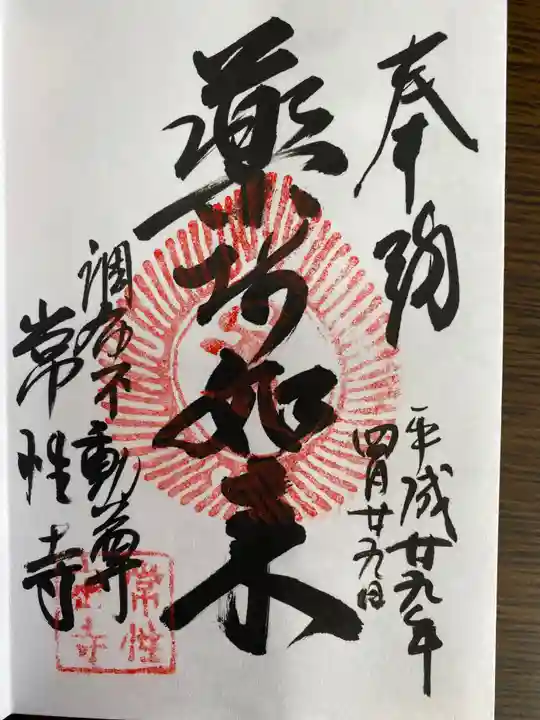 奉拝
平成廿九年
四月廿九日
薬師如来
調布不動尊
常性寺
常性
寺